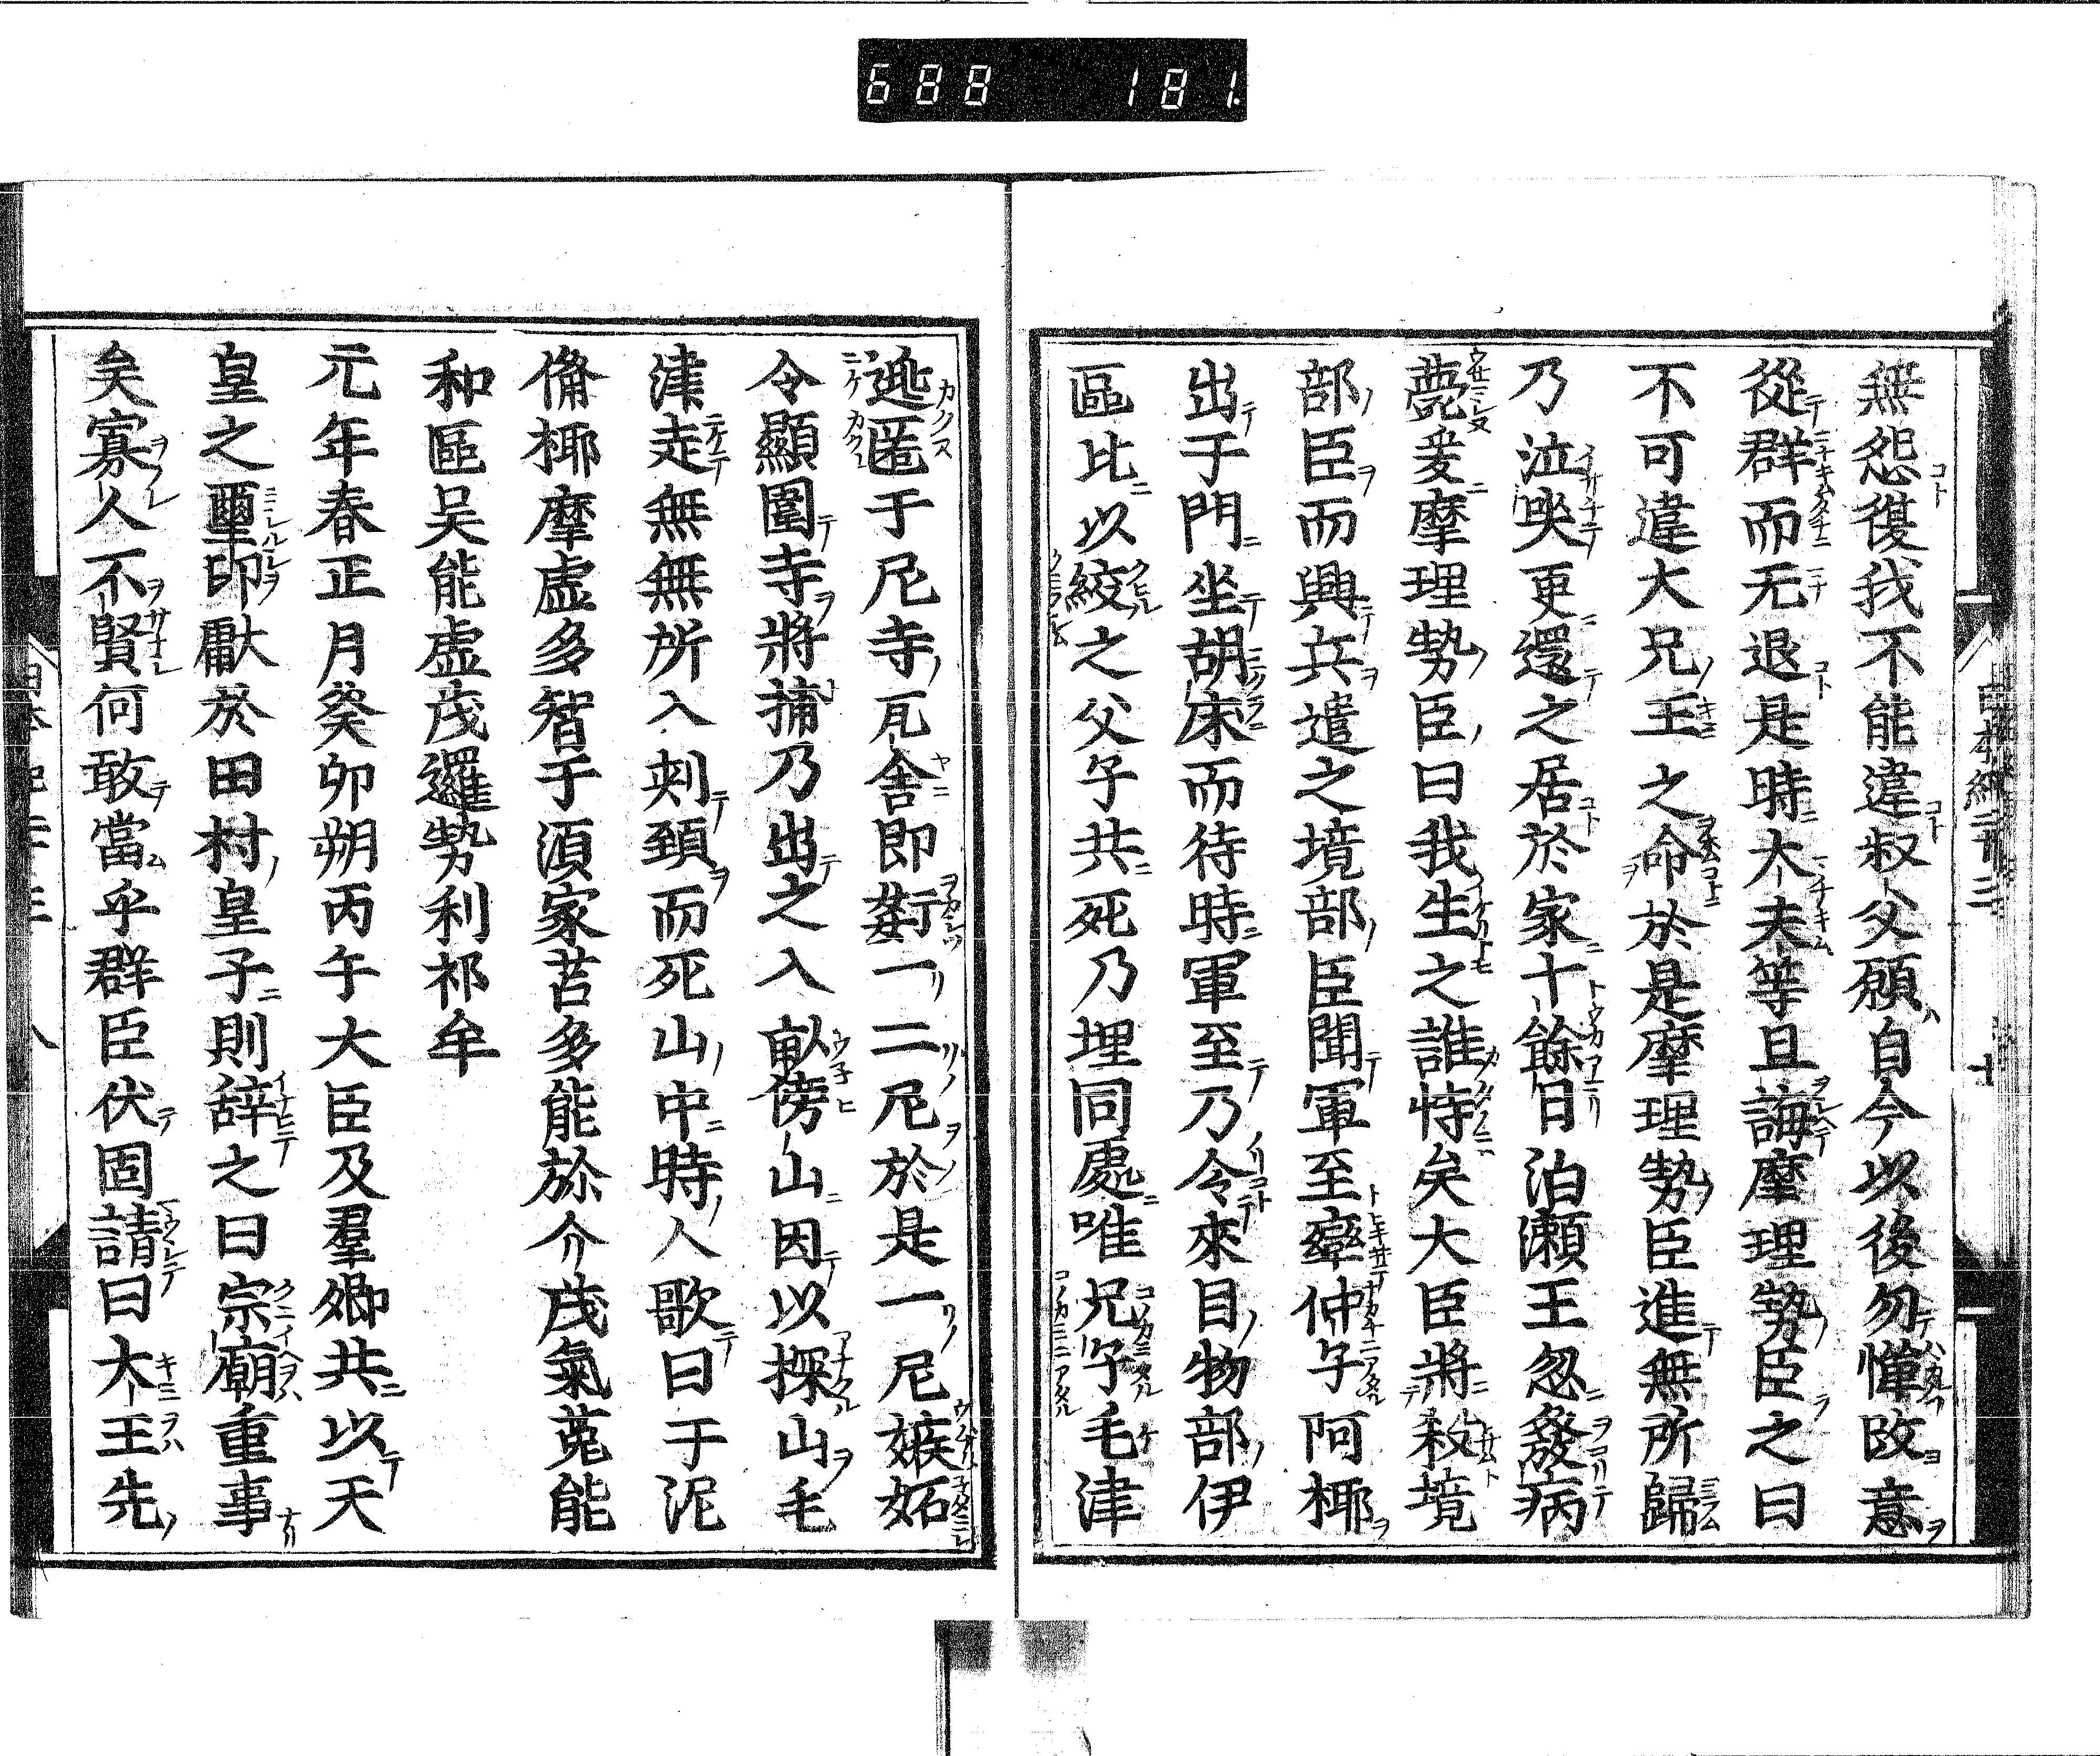 688 181
無怨復我不能違叔父願自今以後勿憚改意
從群而无退是時大夫等且誨摩理勢臣之曰
不可違大兄王之命於是摩理勢臣進無所歸
乃泣哭更還之居於家十餘日泊瀬王忽發病
薨爰摩理勢臣曰我生之誰恃矣大臣將殺境
部臣而興兵遣之境部臣聞軍至率仲子阿椰
出于門坐胡床而待時軍至乃令來目物部伊
區比以絞之父子共死乃埋同處唯兄子毛津
逃匿于尼寺瓦舍即姧一二尼於是一尼嫉妬
令顯圍寺將捕乃出之入畝傍山因以探山毛
津走無無所入刺頚而死山中時人歌曰于泥
備椰摩虚多智于湏家苫多能於介茂氣菟能
和區吴能虚茂邏勢利祁牟
元年春正月癸卯朔丙午大臣及羣卿共以天
皇之璽印獻於田村皇子則辞之曰宗廟重事
矣寡人不賢何敢當乎群臣伏固請曰大王先